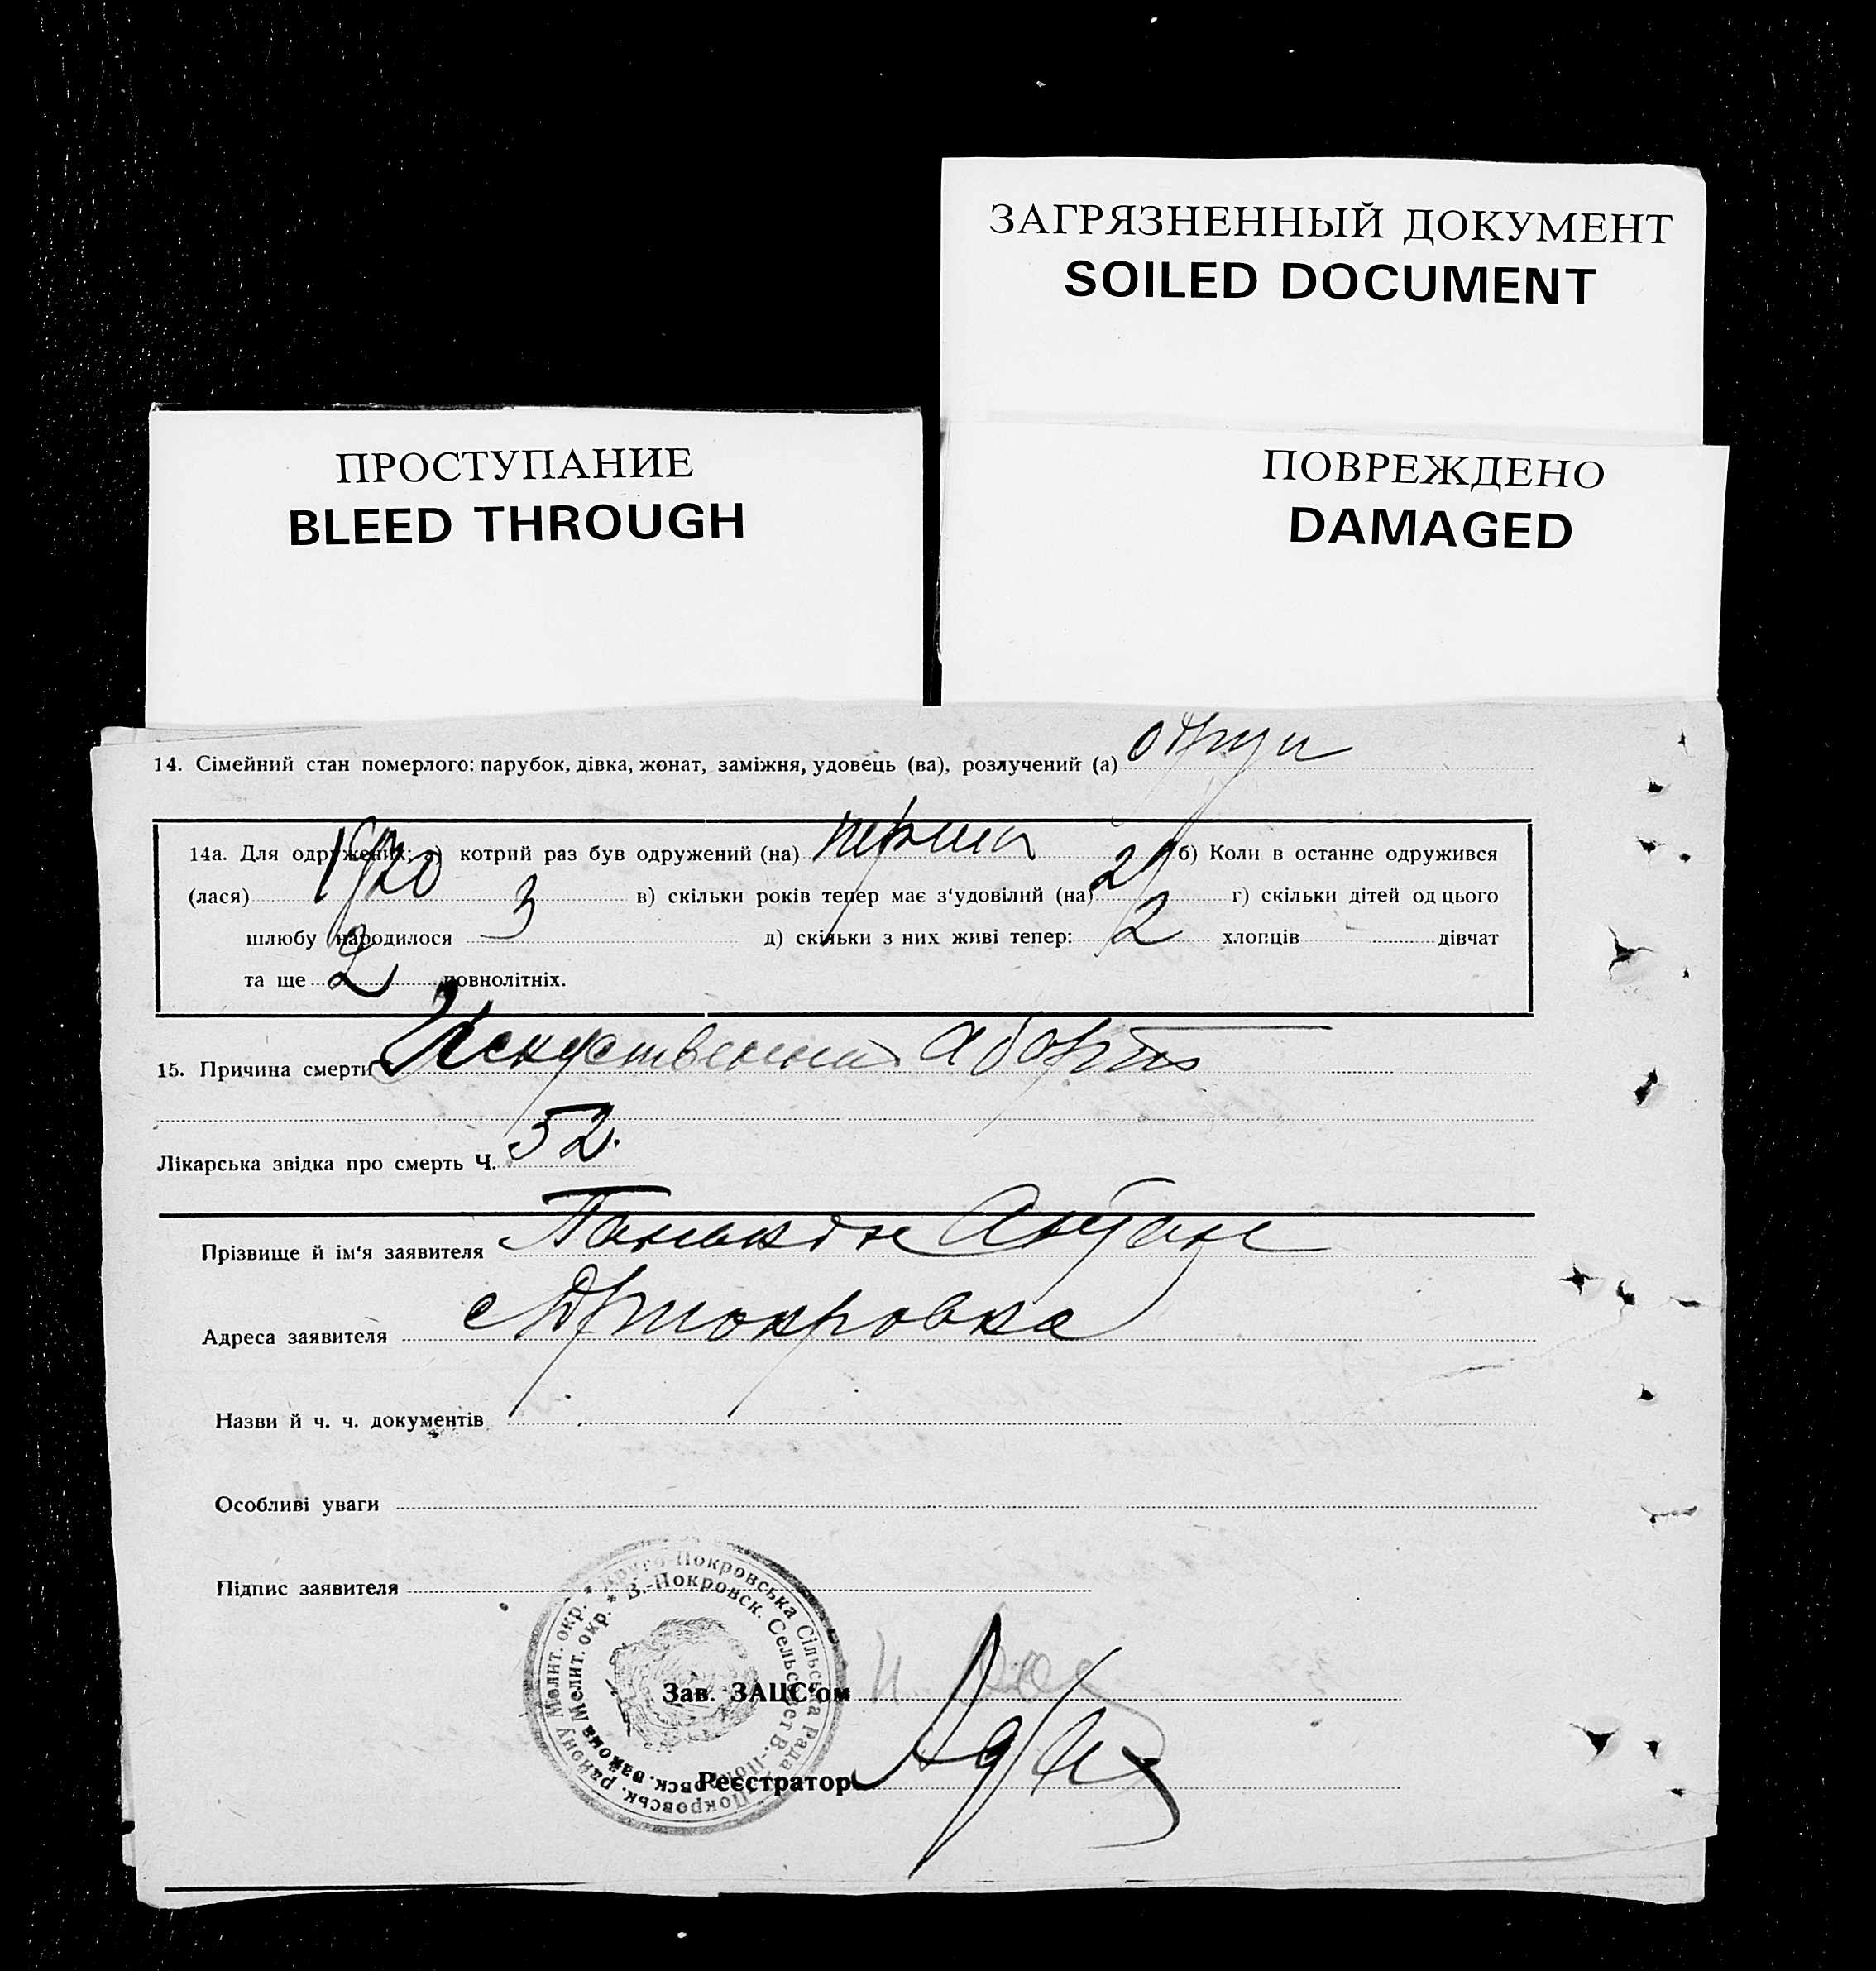 ЗАГРЯЗНЕННЫЙ ДОКУМЕНТ
SOILED DOCUMENT
ПРОСТУПАНИЕ
BLEED THROUGH
ПОВРЕЖДЕНО
DAMAGED
14. Сімейний стан померлого: парубок, дівка, жонат, заміжня, удовець (ва), розлучений (а)
14а. Для одружених: а) котрий раз був одружений (на) перший б) Коли в останне одружився
(лася) 1920 в) скільки років тепер має з'удовілий (на) г) скільки дітей од цього
шлюбу народилося 3 д) скільки з них живі тепер: 2 хлопців дівчат
та ще 2 повнолітніх.
15. Причина смерти Искуственний аборт
Лікарська звідка про смерть Ч. 52.
Прізвище й ім'я заявителя Панькін
Адреса заявителя с
Назви й ч. ч. документів
Особливі уваги
Підпис заявителя
Покровська Сільська Рада Покровськ. району Меліт. окр.
В.-Покровск. Сельсовет В.-Покровск. района Мелит. окр.
Зав. ЗАЦС'ом
Реєстратор